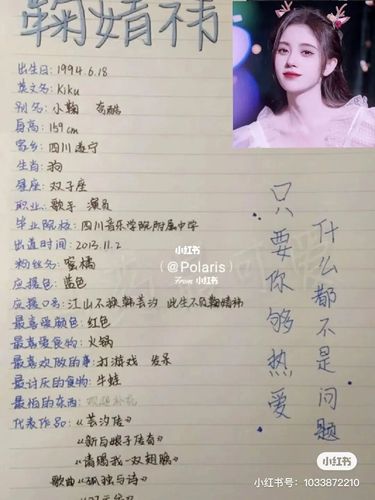 鞠婧祎
出生日：1994.6.18
英文名：Kiku
别名：小鞠
身高：159cm
家乡：四川遂宁
生肖：狗
星座：双子座
职业：歌手 演员
毕业院校：四川音乐学院附属中学
出道时间：2013.11.2
粉丝名：蜜橘
应援色：蓝色
应援口号：江山不换韩芸汐 此生不负鞠婧祎
最喜爱颜色：红色
最喜爱食物：火锅
最喜欢做的事：打游戏 发呆
最讨厌的食物：牛蛙
最怕的东西：
代表作品：《芸汐传》
《新白娘子传奇》
《请赐我一双翅膀》
歌曲《孤独与诗》
只要你够热爱
什么都不是问题
小红书
(@Polaris)
From 小红书
小红书
小红书号：1033872210